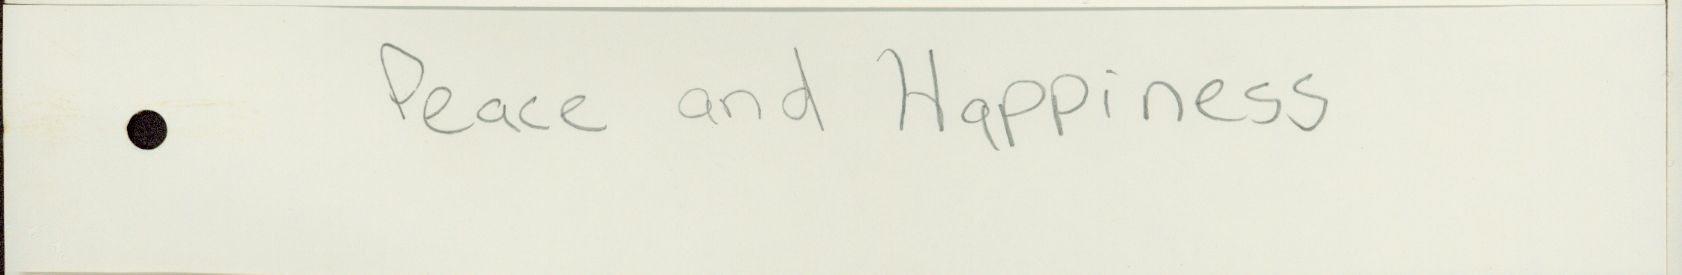 Peace and Happiness